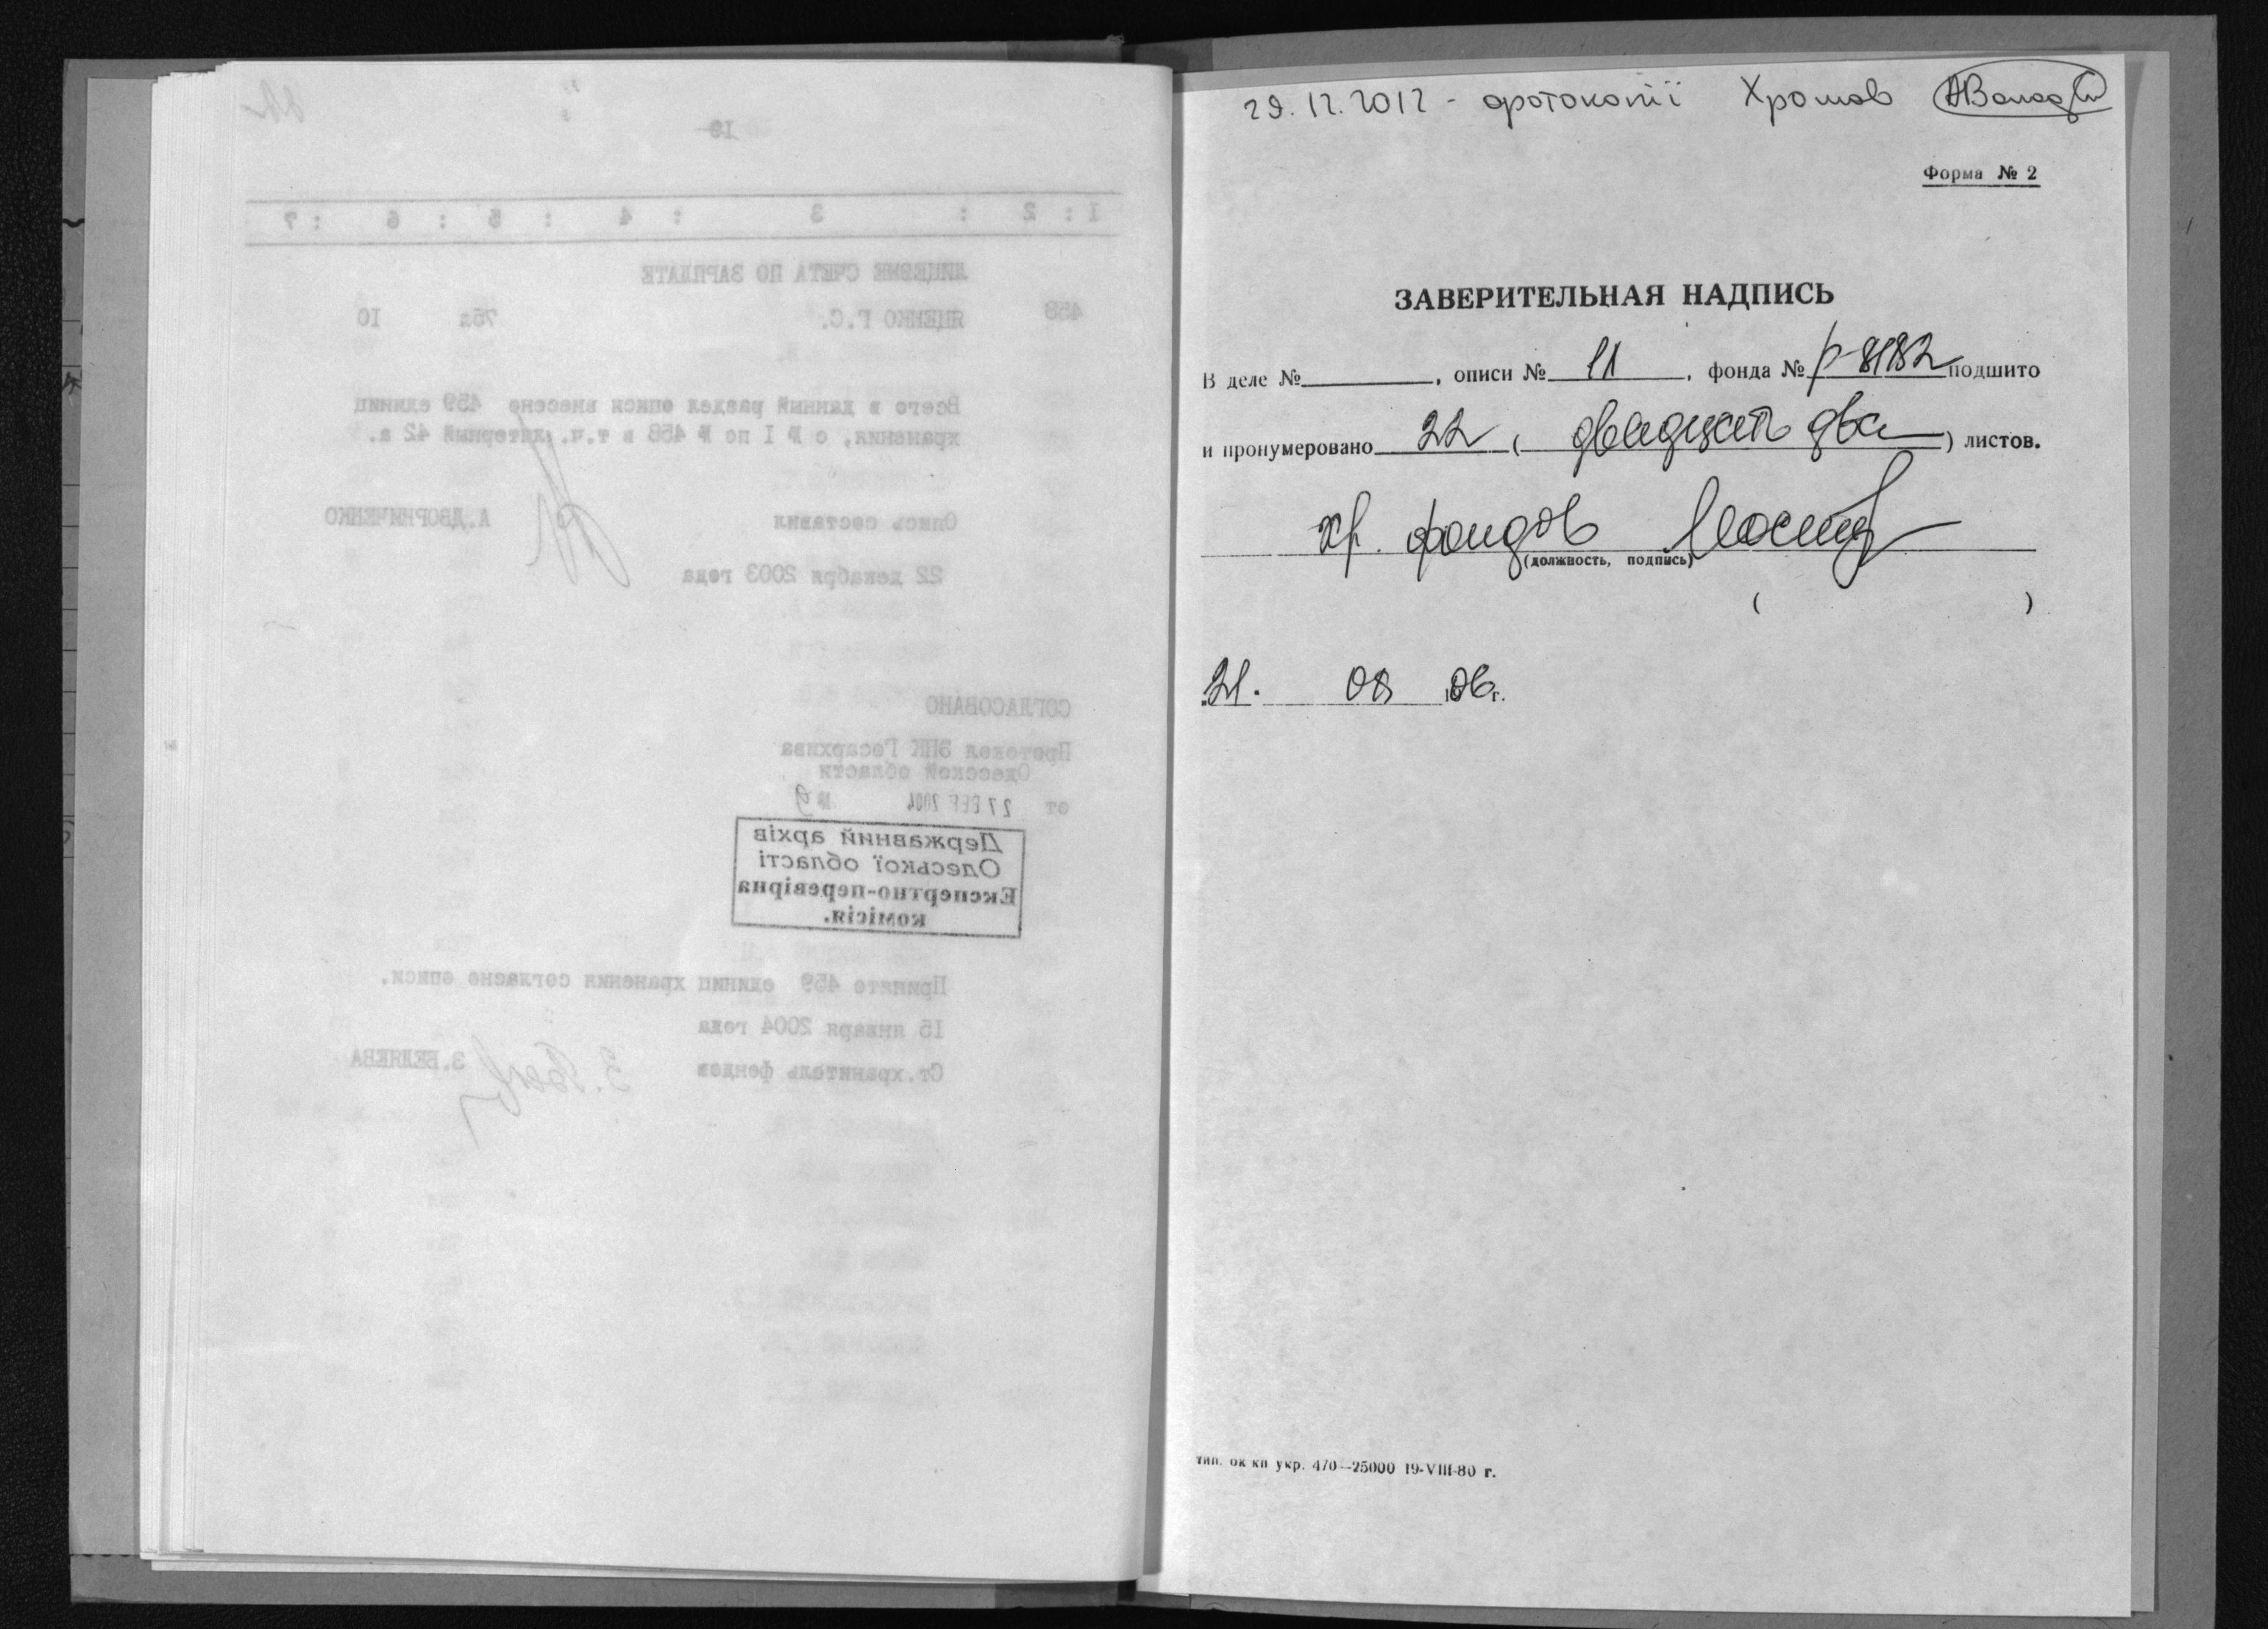 22
19
1 : 2 : 3 : 4 : 5 : 6 : 7
ЛИЦЕВЫЕ СЧЕТА ПО ЗАРПЛАТЕ
459 ЯЦЕНКО Г.С. 75л 10
Всего в данный раздел описи внесено 459 единиц
хранения, с № I по № 458 в т.ч. литерный 42 а.
Опись составил А.ДВОРНИЧЕНКО
22 декабря 2003 года
СОГЛАСОВАНО
Протокол ЭПК Госархива
Одесской области
от 27 ФЕВ 2004 № 9
Державний архів
Одеської області
Експертно-перевірна
комісія.
Принято 459 единиц хранения согласно описи.
15 января 2004 года
Ст.хранитель фондов Э.БЕЛЯЕВА
29.12.2012 - фотокопії Хромов
Форма № 2
ЗАВЕРИТЕЛЬНАЯ НАДПИСЬ
В деле №, описи № 11, фонда № р-8182 подшито
и пронумеровано 22 ( двадцать два ) листов.
хр. фондов
(должность, подпись)
( )
21. 08 06 г.
тип. ок кп укр. 470—25000 19-VIII-80 г.